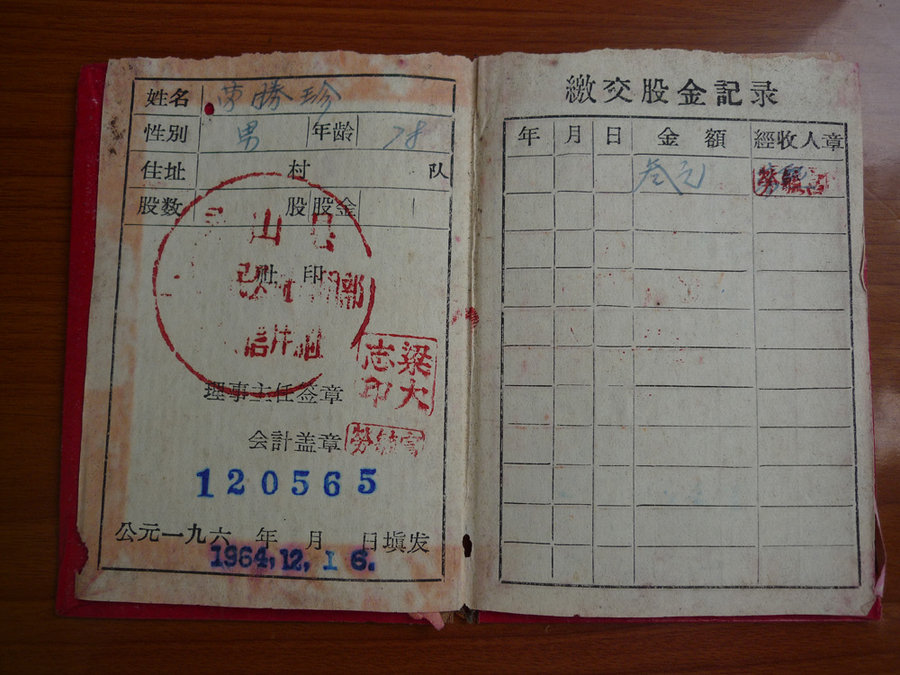 姓名 胜珍
性别 男 年龄 78
住址 村 队
股数 股 股金
山
社 印
信用
梁大志印
理事主任签章
会計盖章
120565
公元一九六 年 月 日填发
1964.12.16.
缴交股金記录
年 月 日 金額 經收人章
叁元